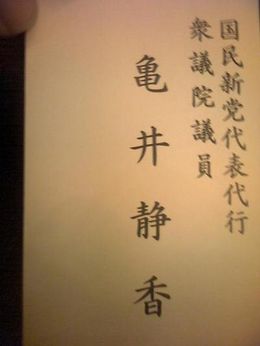 国民新党代表代行
衆議院議員
亀井静香